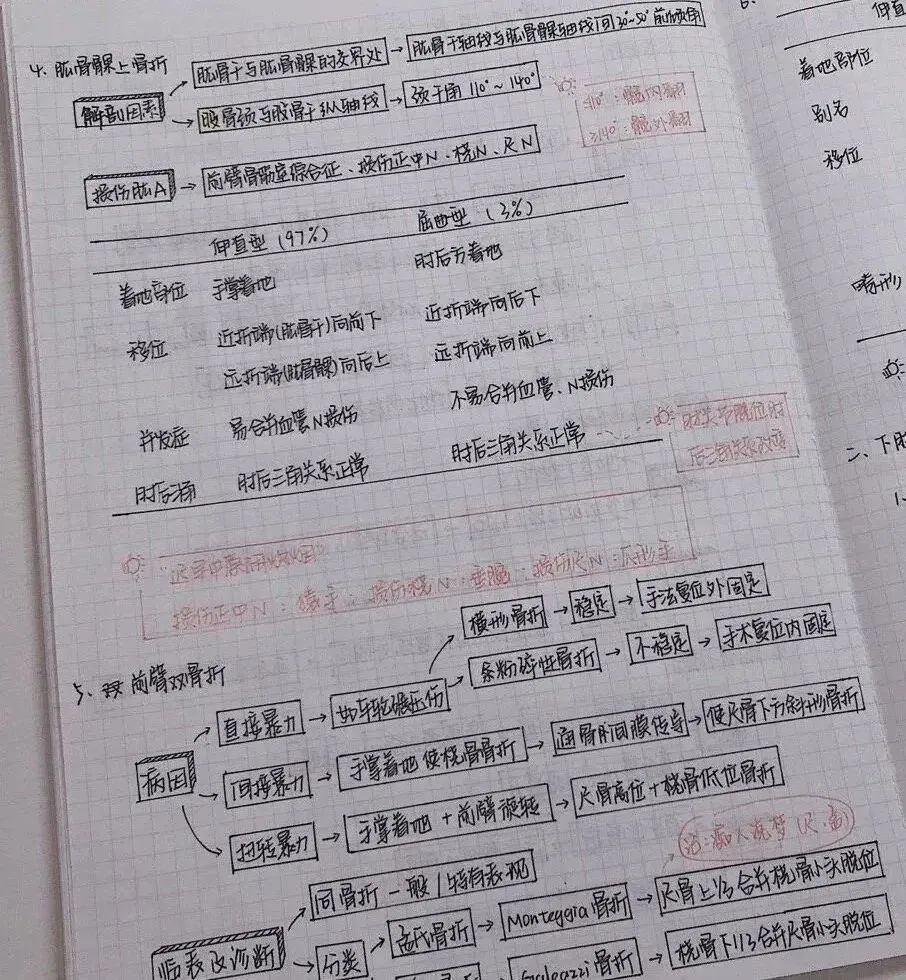 4、肱骨髁上骨折
解剖因素 → 肱骨干与肱骨髁的交界处 → 肱骨干轴线与肱骨髁轴线间30°~50°前倾角
→ 股骨颈与股骨干纵轴线 → 颈干角 110°~140°
<110°:髋内翻
>140°:髋外翻
损伤肱A → 前臂骨筋室综合征、损伤正中N、桡N、尺N
伸直型(97%) 屈曲型(3%)
着地部位 手掌着地 肘后方着地
移位 近折端(肱骨干)向前下 近折端向后下
远折端(肱骨髁)向后上 远折端向前上
并发症 易合并血管N损伤 不易合并血管、N损伤
肘后三角 肘后三角关系正常 肘后三角关系正常
肘关节脱位时
后三角关系改变
损伤正中N:猿手;损伤桡N:垂腕;损伤尺N:爪形手
5、双 前臂双骨折
病因 → 直接暴力 → 如车轮碾压伤 → 横形骨折 → 稳定 → 手法复位外固定
→ 粉碎性骨折 → 不稳定 → 手术复位内固定
→ 间接暴力 → 手掌着地使桡骨骨折 → 通骨间膜传导 → 使尺骨下方斜形骨折
→ 扭转暴力 → 手掌着地+前臂旋转 → 尺骨高位+桡骨低位骨折
临表及诊断 → 同骨折一般/特有表现
→ 分类 → 孟氏骨折 → Monteggia骨折 → 尺骨上1/3合并桡骨小头脱位
Galeazzi骨折 → 桡骨下1/3合并尺骨小头脱位
伸直
着地部位
别名
移位
畸形
二、下肢
1、